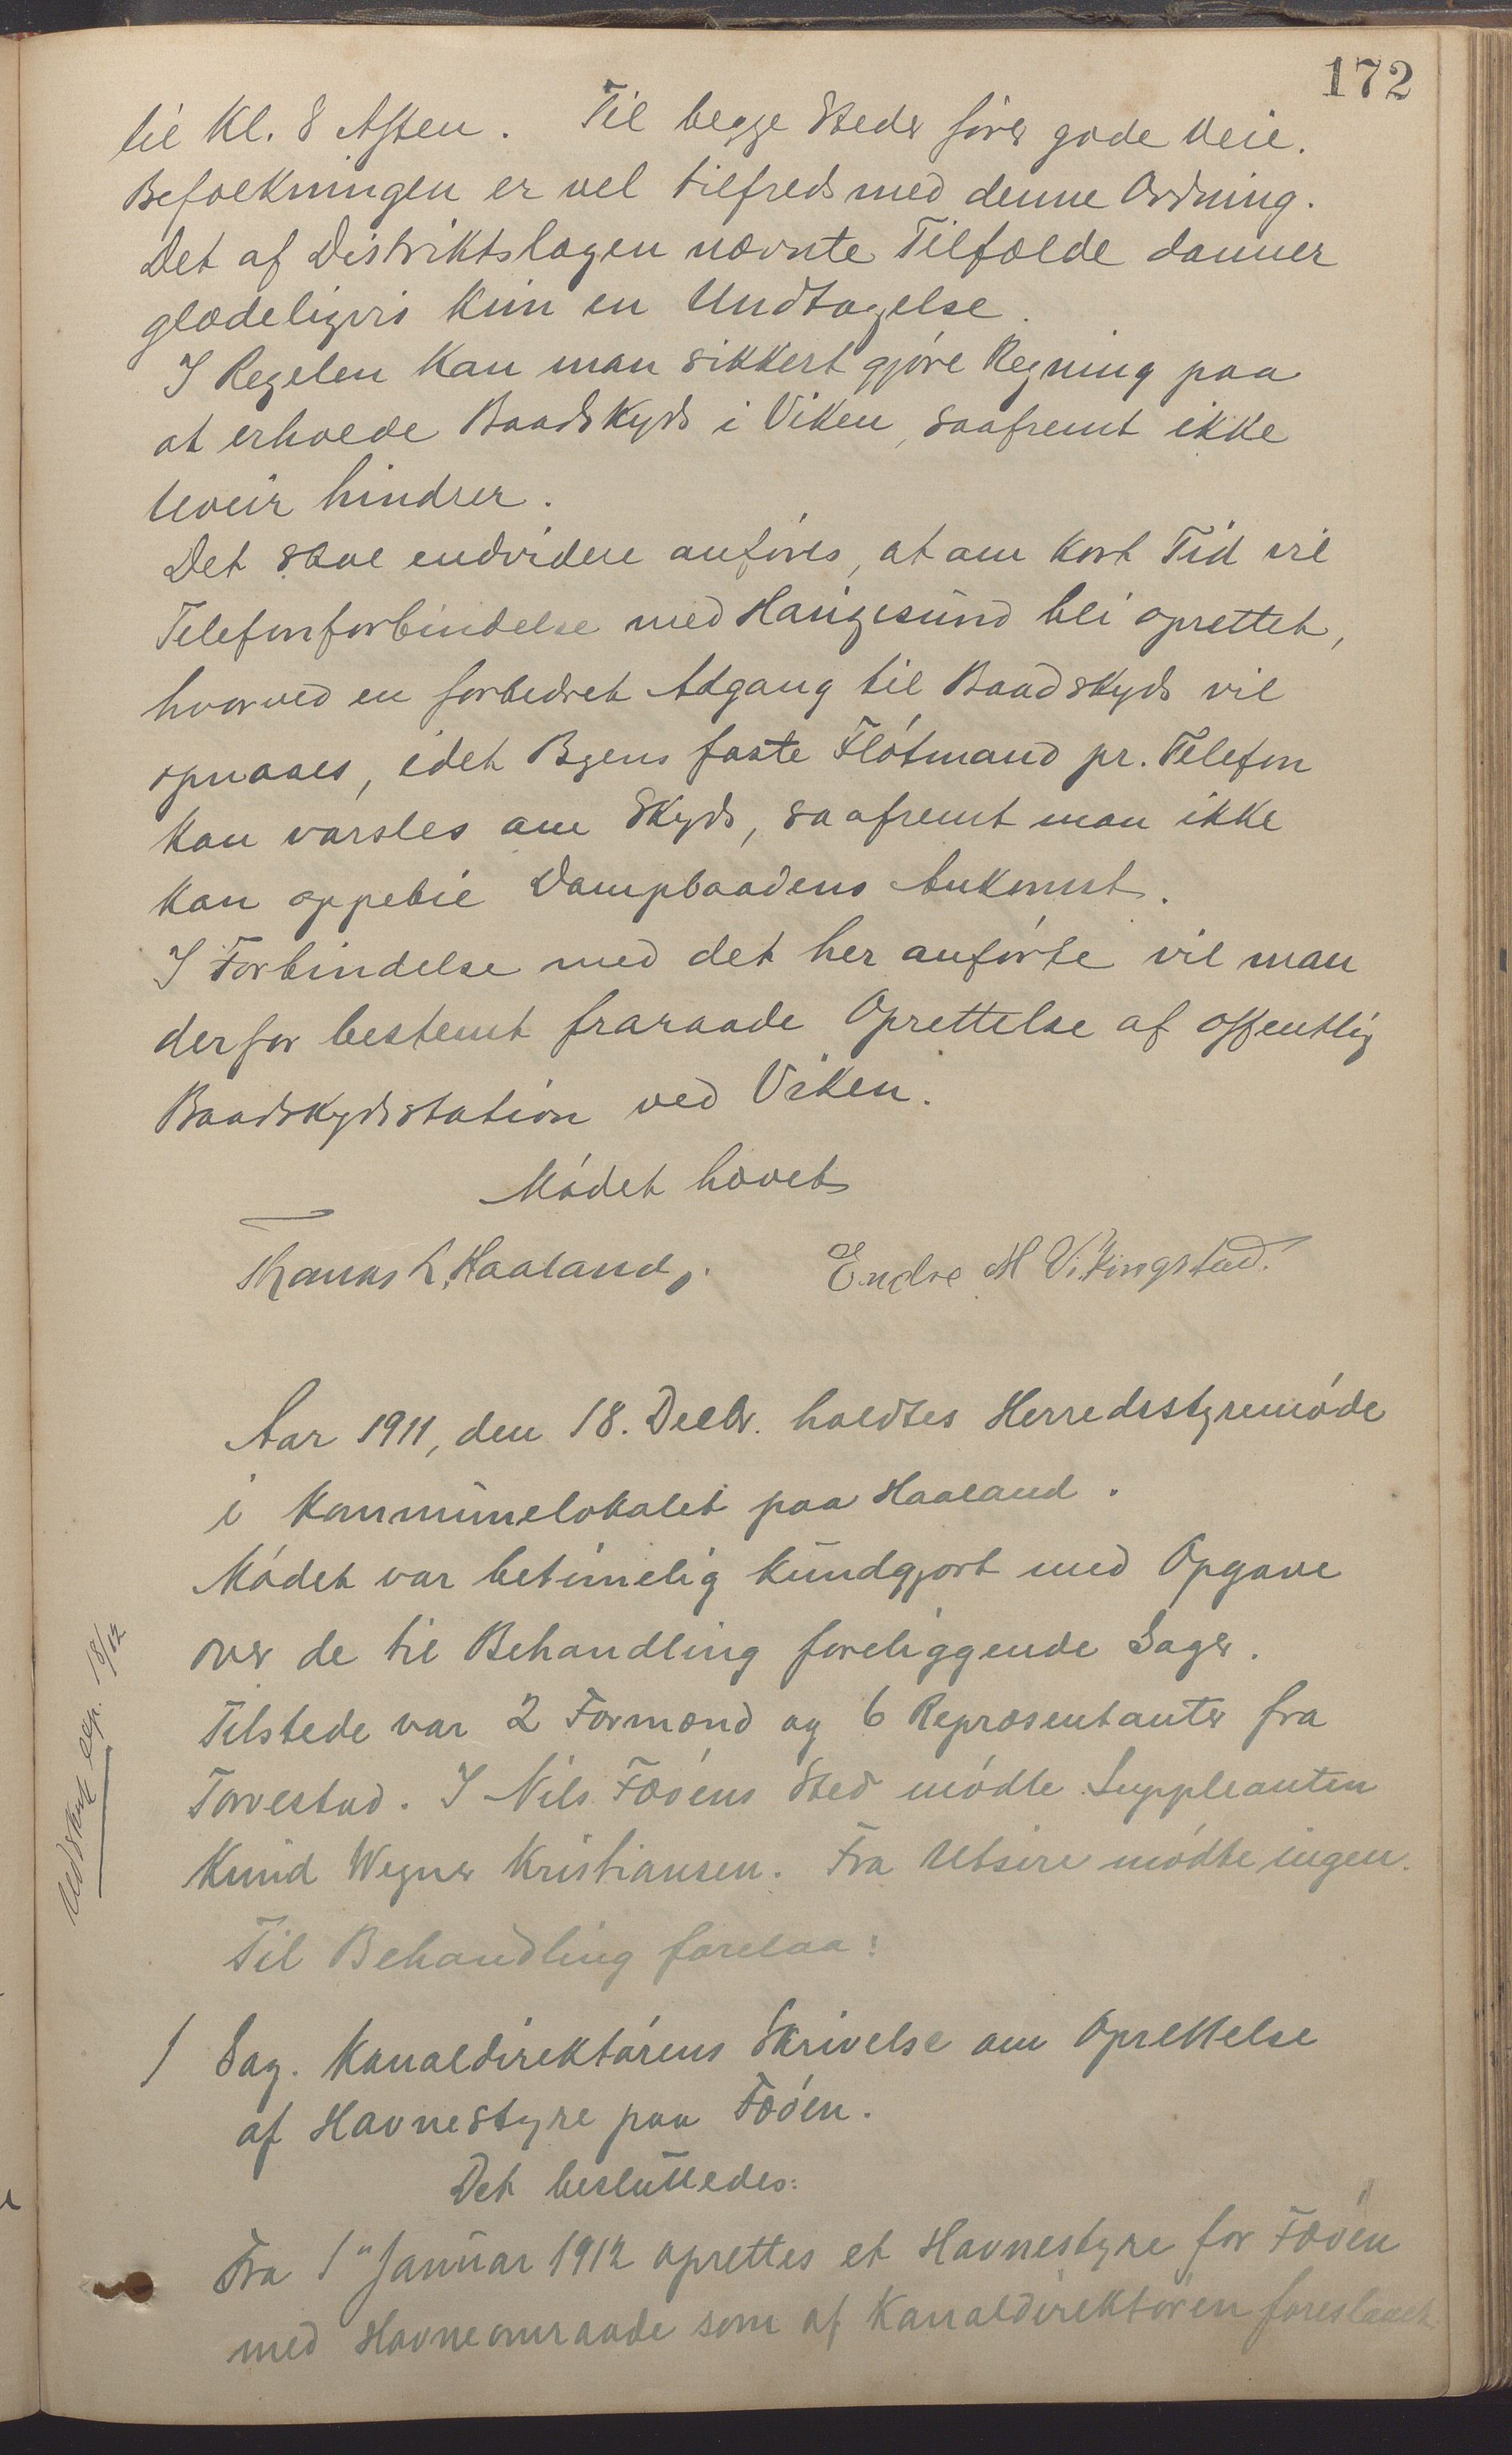 172
til Kl. 8 Aften. Til begge Steder fører gode Veie.
Befolkningen er vel tilfreds med denne Ordning.
Det af Distriktslægen nævnte Tilfælde danner
glædeligvis kun en Undtagelse.
I Regelen kan man sikkert gjøre Regning paa
at erholde Baadskyds i Viken, saafremt ikke
Uveir hindrer.
Det skal endvidere anføres, at om kort Tid vil
Telefonforbindelse med Haugesund bli oprettet,
hvorved en forbedret Adgang til Baadskyds vil
opnaaes, idet Byens faste Fløtmand pr. Telefon
kan varsles om Skyds, saafremt man ikke
kan oppebie Dampbaadens Ankomst.
I Forbindelse med det her anførte vil man
derfor bestemt fraraade Oprettelse af offentlig
Baadskydsstation ved Viken.
Mødet hævet
Thomas L. Haaland. Endre M Vikingstad.
Aar 1911, den 18. Decbr. holdtes Herredsstyremøde
i Kommunelokalet paa Haaland.
Mødet var betimelig kundgjort med Opgave
over de til Behandling foreliggende Sager.
Tilstede var 2 Formænd og 6 Repræsentanter fra
Torvestad. I Nils Føøens Sted mødte Suppleanten
Knud Wegner Kristiansen. Fra Utsire mødte ingen.
Udskrift exp. 18/12
Til Behandling forelaa:
1 Sag. Kanaldirektørens Skrivelse om Oprettelse
af Havnestyre paa Fæøen.
Det besluttedes:
Fra 1" Januar 1912 oprettes et Havnestyre for Fæøen
med Havneomraade som af Kanaldirektøren foreslaaet